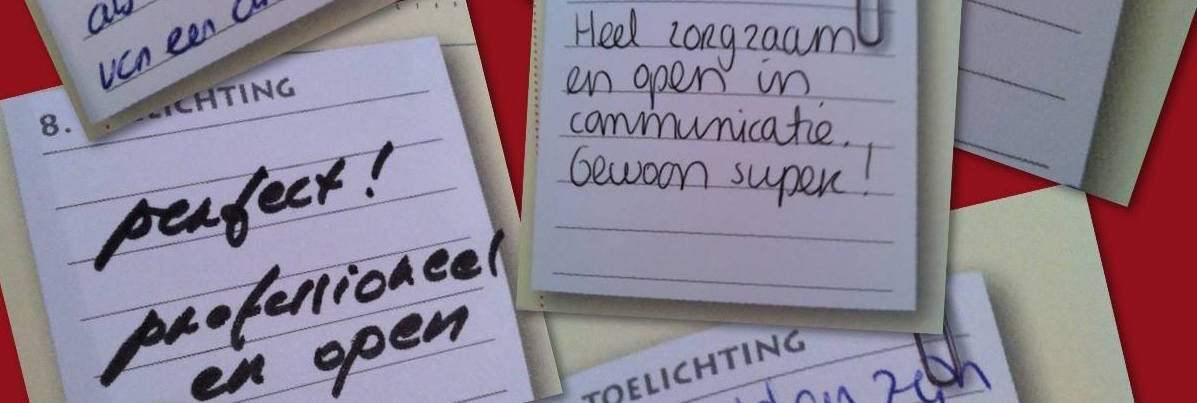 van een
8.
perfect!
professioneel
en open
Heel zorgzaam
en open in
communicatie.
Gewoon super!
TOELICHTING
zijn